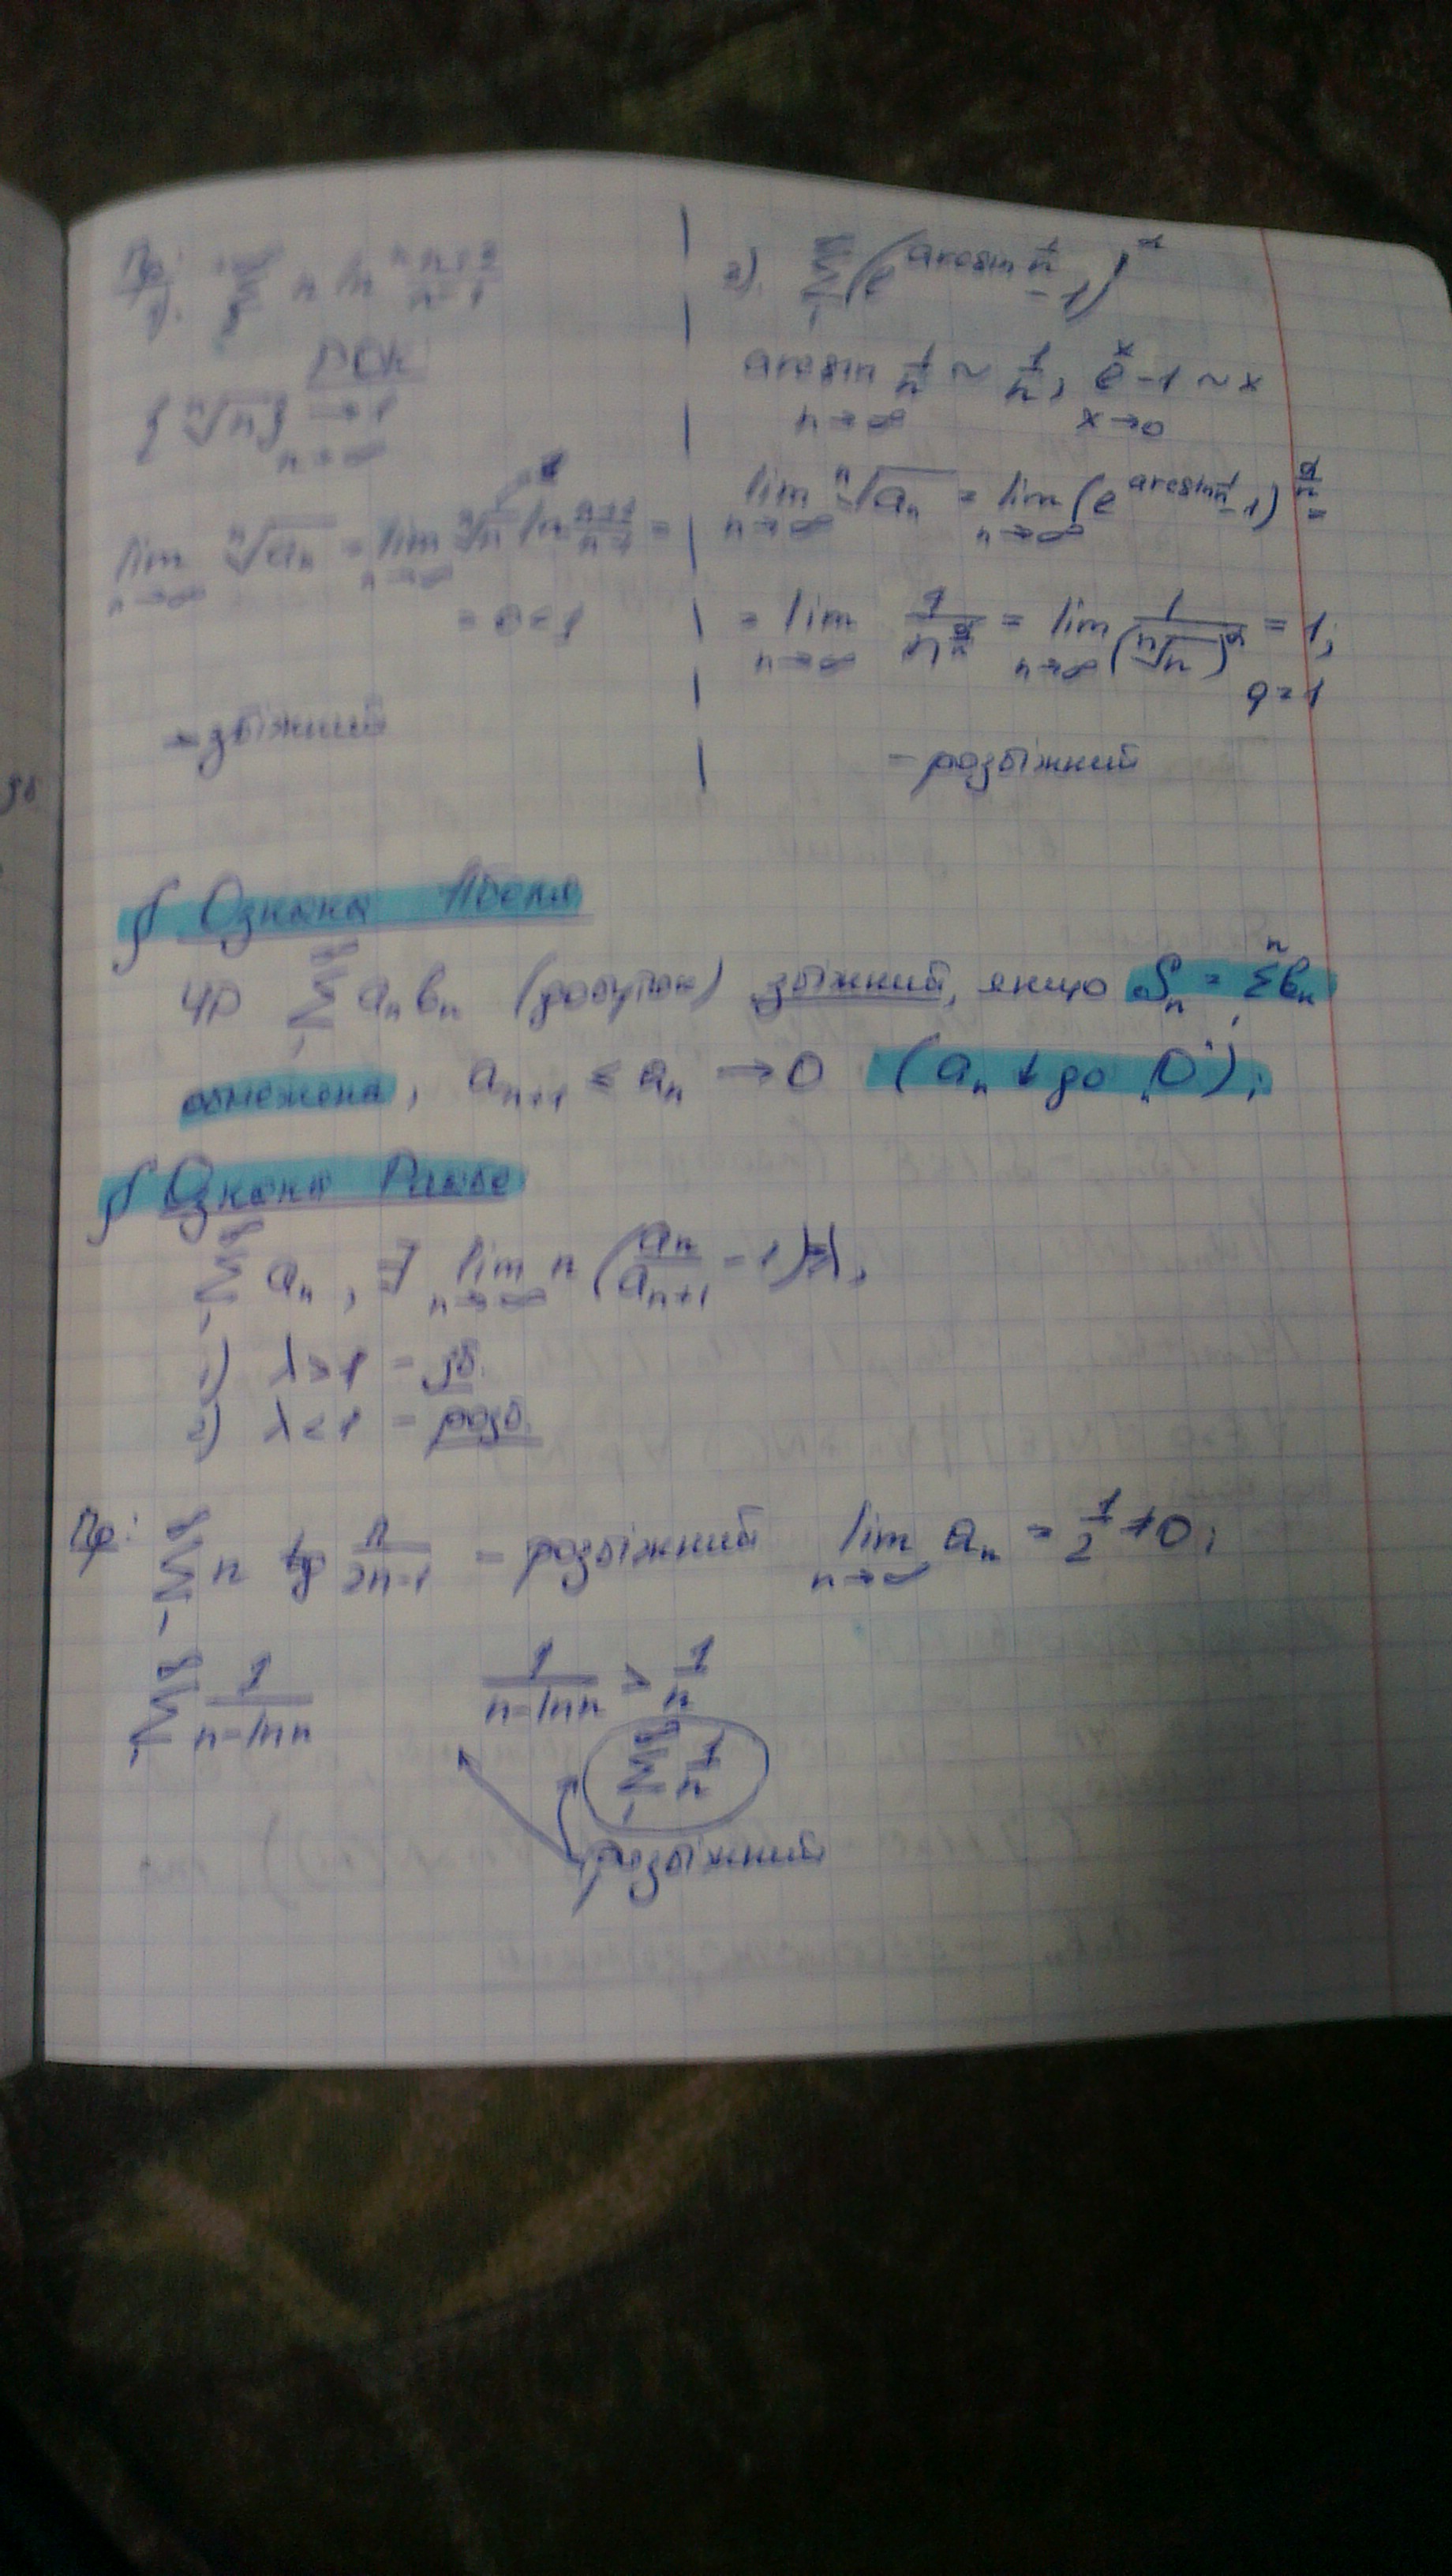 Пр:
1). ∑ n lnⁿ (n+2)/(n-1)
{ⁿ√n} → 1
n→∞
lim ⁿ√aₙ = lim ⁿ√n ln =
n→∞ n→∞
= 0 < 1
- збіжний
2). ∑₁^∞ (e^(arcsin 1/n) - 1)
arcsin 1/n ~ 1/n, eˣ - 1 ~ x
n→∞ x→0
lim ⁿ√aₙ = lim (e^(arcsin 1/n) - 1) =
n→∞ n→∞
= lim = lim = 1;
n→∞ n→∞
q = 1
- розбіжний
§ Ознака Абеля
ЧР ∑₁^∞ aₙbₙ (добуток) збіжний, якщо Sₙ = ∑₁ⁿ bₙ
обмежена, aₙ₊₁ ≤ aₙ → 0 (aₙ ↓ до "0");
§ Ознака Раабе
∑₁^∞ aₙ, ∃ lim n (aₙ/aₙ₊₁ - 1) = λ,
n→∞
1) λ > 1 - зб.
2) λ < 1 - розб.
Пр:
∑₁^∞ n tg - розбіжний lim aₙ = 1/2 ≠ 0;
n→∞
∑₁^∞ 1/(n-ln n) 1/(n-ln n) > 1/n
∑₁^∞ 1/n
розбіжний